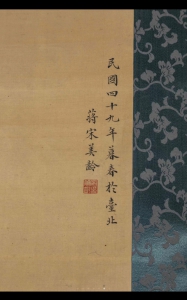 民國四十九年暮春於臺北
蔣宋美齡